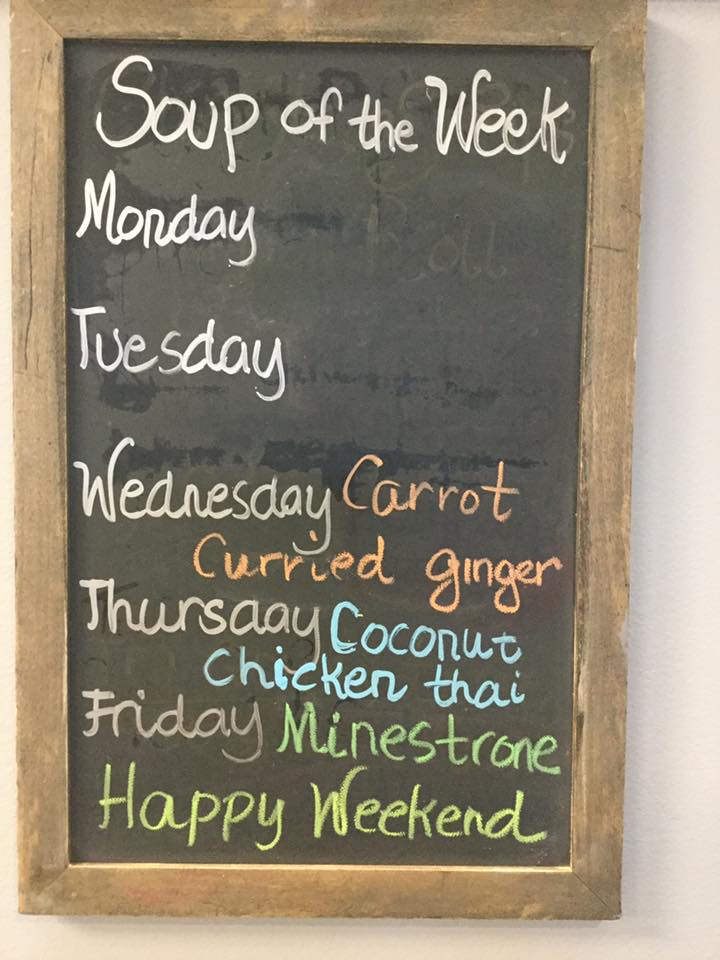 Soup of the Week
Monday
Tuesday
Wednesday Carrot
Curried ginger
Thursday Coconut
Chicken thai
Friday Minestrone
Happy Weekend